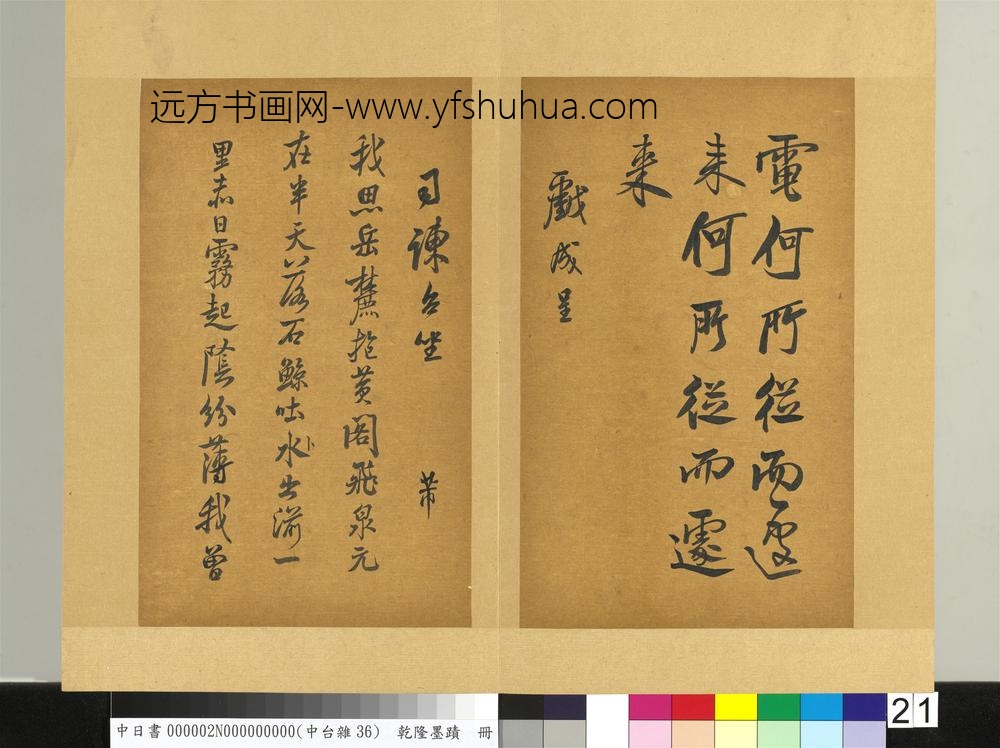 远方书画网-www.yfshuhua.com
電何所從而遽
来何所從而遽
来
戲成呈
司諫台坐 芾
我思岳麓抱黄閣飛泉元
在半天落石鯨吐水出湔一
里赤日霧起陰紛薄我曾
中日書 000002N000000000(中台雜36) 乾隆墨蹟 冊
21